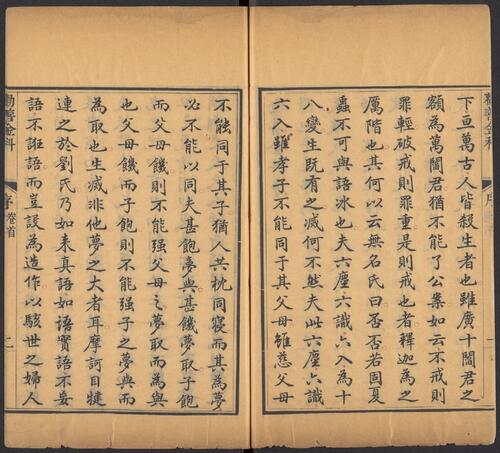 下亘萬古人皆殺生者也雖廣十閻君之
額為萬閻君猶不能了公案如云不戒則
罪輕破戒則罪重是則戒也者釋迦為之
厲階也其何以云無名氏曰否否若固夏
蟲不可與語冰也夫六塵六識六入為十
八變生既有之滅何不然夫此六塵六識
六入雖孝子不能同于其父母雖慈父母
不能同于其子猶人共枕同寢而其為夢
必不能以同夫甚飽夢與甚饑夢取子飽
而父母饑則不能強父母之夢取而為與
也父母饑而子飽則不能強子之夢與而
為取也生滅非他夢之大者耳摩訶目犍
連之於劉氏乃如来真語如語實語不妄
語不誑語而豈設為造作以駭世之婦人
勸善金科 序 卷首 二